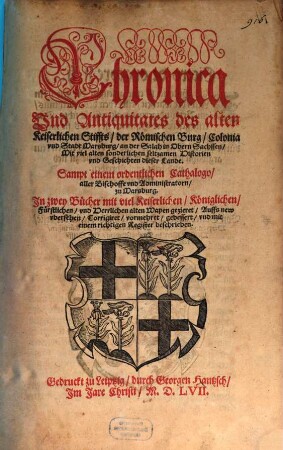 Chronica
Und Antiquitates des alten
Keiserlichen Stiffts / der Römischen Burg / Colonia
und Stadt Marsburg / an der Salah in Obern Sachssen /
Mit viel alten sonderlichen seltzamen Historien
und Geschichten dieser Lande.
Sampt einem ordentlichen Cathalogo /
aller Bischoffe und Administratorn /
zu Marsburg.
In zwey Bücher mit viel Keiserlichen / Königlichen /
Fürstlichen / und Herrlichen alten Wapen gezieret / Auffs new
ubersehen / Corrigiret / vormehret / gebessert / und mit
einem richtigen Register beschrieben.
Gedruckt zu Leiptzig / durch Georgen Hantzsch /
Im Jare Christi / M. D. LVII.